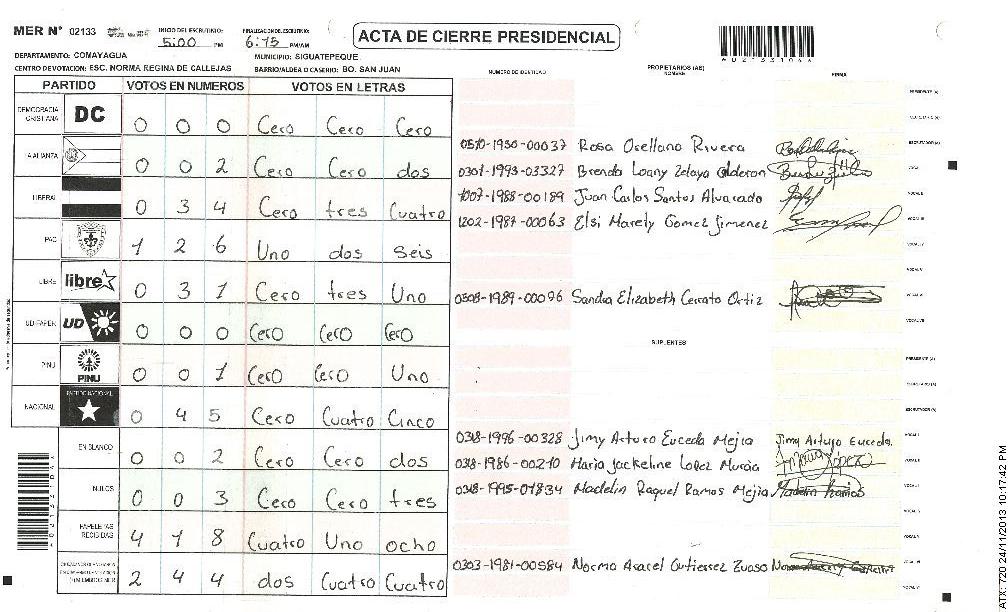 MER N° 02133 INICIO DEL ESCRUTINIO: 5:00 PM FINALIZACION DEL ESCRUTINIO: 6:15 PM/AM
ACTA DE CIERRE PRESIDENCIAL
DEPARTAMENTO: COMAYAGUA MUNICIPIO: SIGUATEPEQUE
CENTRO DE VOTACION: ESC. NORMA REGINA DE CALLEJAS BARRIO/ALDEA O CASERIO: BO. SAN JUAN
NUMERO DE IDENTIDAD PROPIETARIOS (AS) NOMBRE FIRMA
PARTIDO VOTOS EN NUMEROS VOTOS EN LETRAS
DEMOCRACIA CRISTIANA DC 0 0 0 Cero Cero Cero
LA ALIANZA 0 0 2 Cero Cero dos
LIBERAL 0 3 4 Cero tres Cuatro
PAC 1 2 6 Uno dos Seis
LIBRE libre 0 3 1 Cero tres Uno
UD/FAPER UD 0 0 0 Cero Cero Cero
PINU PINU 0 0 1 Cero Cero Uno
NACIONAL PARTIDO NACIONAL 0 4 5 Cero Cuatro Cinco
EN BLANCO 0 0 2 Cero Cero dos
NULOS 0 0 3 Cero Cero tres
PAPELETAS RECIBIDAS 4 1 8 Cuatro Uno ocho
2 4 4 dos Cuatro Cuatro
PRESIDENTE (A)
SECRETARIO (A)
0510-1950-00037 Rosa Orellana Rivera ESCRUTADOR (A)
0301-1993-03327 Brenda Loany Zelaya Calderon
1007-1988-00189 Juan Carlos Santos Alvarado VOCAL II
1202-1987-00063 Elsi Marely Gomez Jimenez VOCAL III
VOCAL IV
VOCAL V
0308-1989-00096 Sandra Elizabeth Cerrato Ortiz VOCAL VI
VOCAL VII
SUPLENTES
PRESIDENTE (A)
SECRETARIO (A)
ESCRUTADOR (A)
0318-1996-00328 Jimy Arturo Euceda Mejia Jimy Arturo Euceda. VOCAL I
0318-1986-00210 Maria Jackeline Lopez Murcia VOCAL II
0318-1995-01834 Madelin Raquel Ramos Mejia Madelin Ramos
VOCAL V
0303-1981-00584 Norma Aracel Gutierrez Zuaso VOCAL VI
VOCAL VII
ATX: 720 24/11/2013 10:17:42 PM